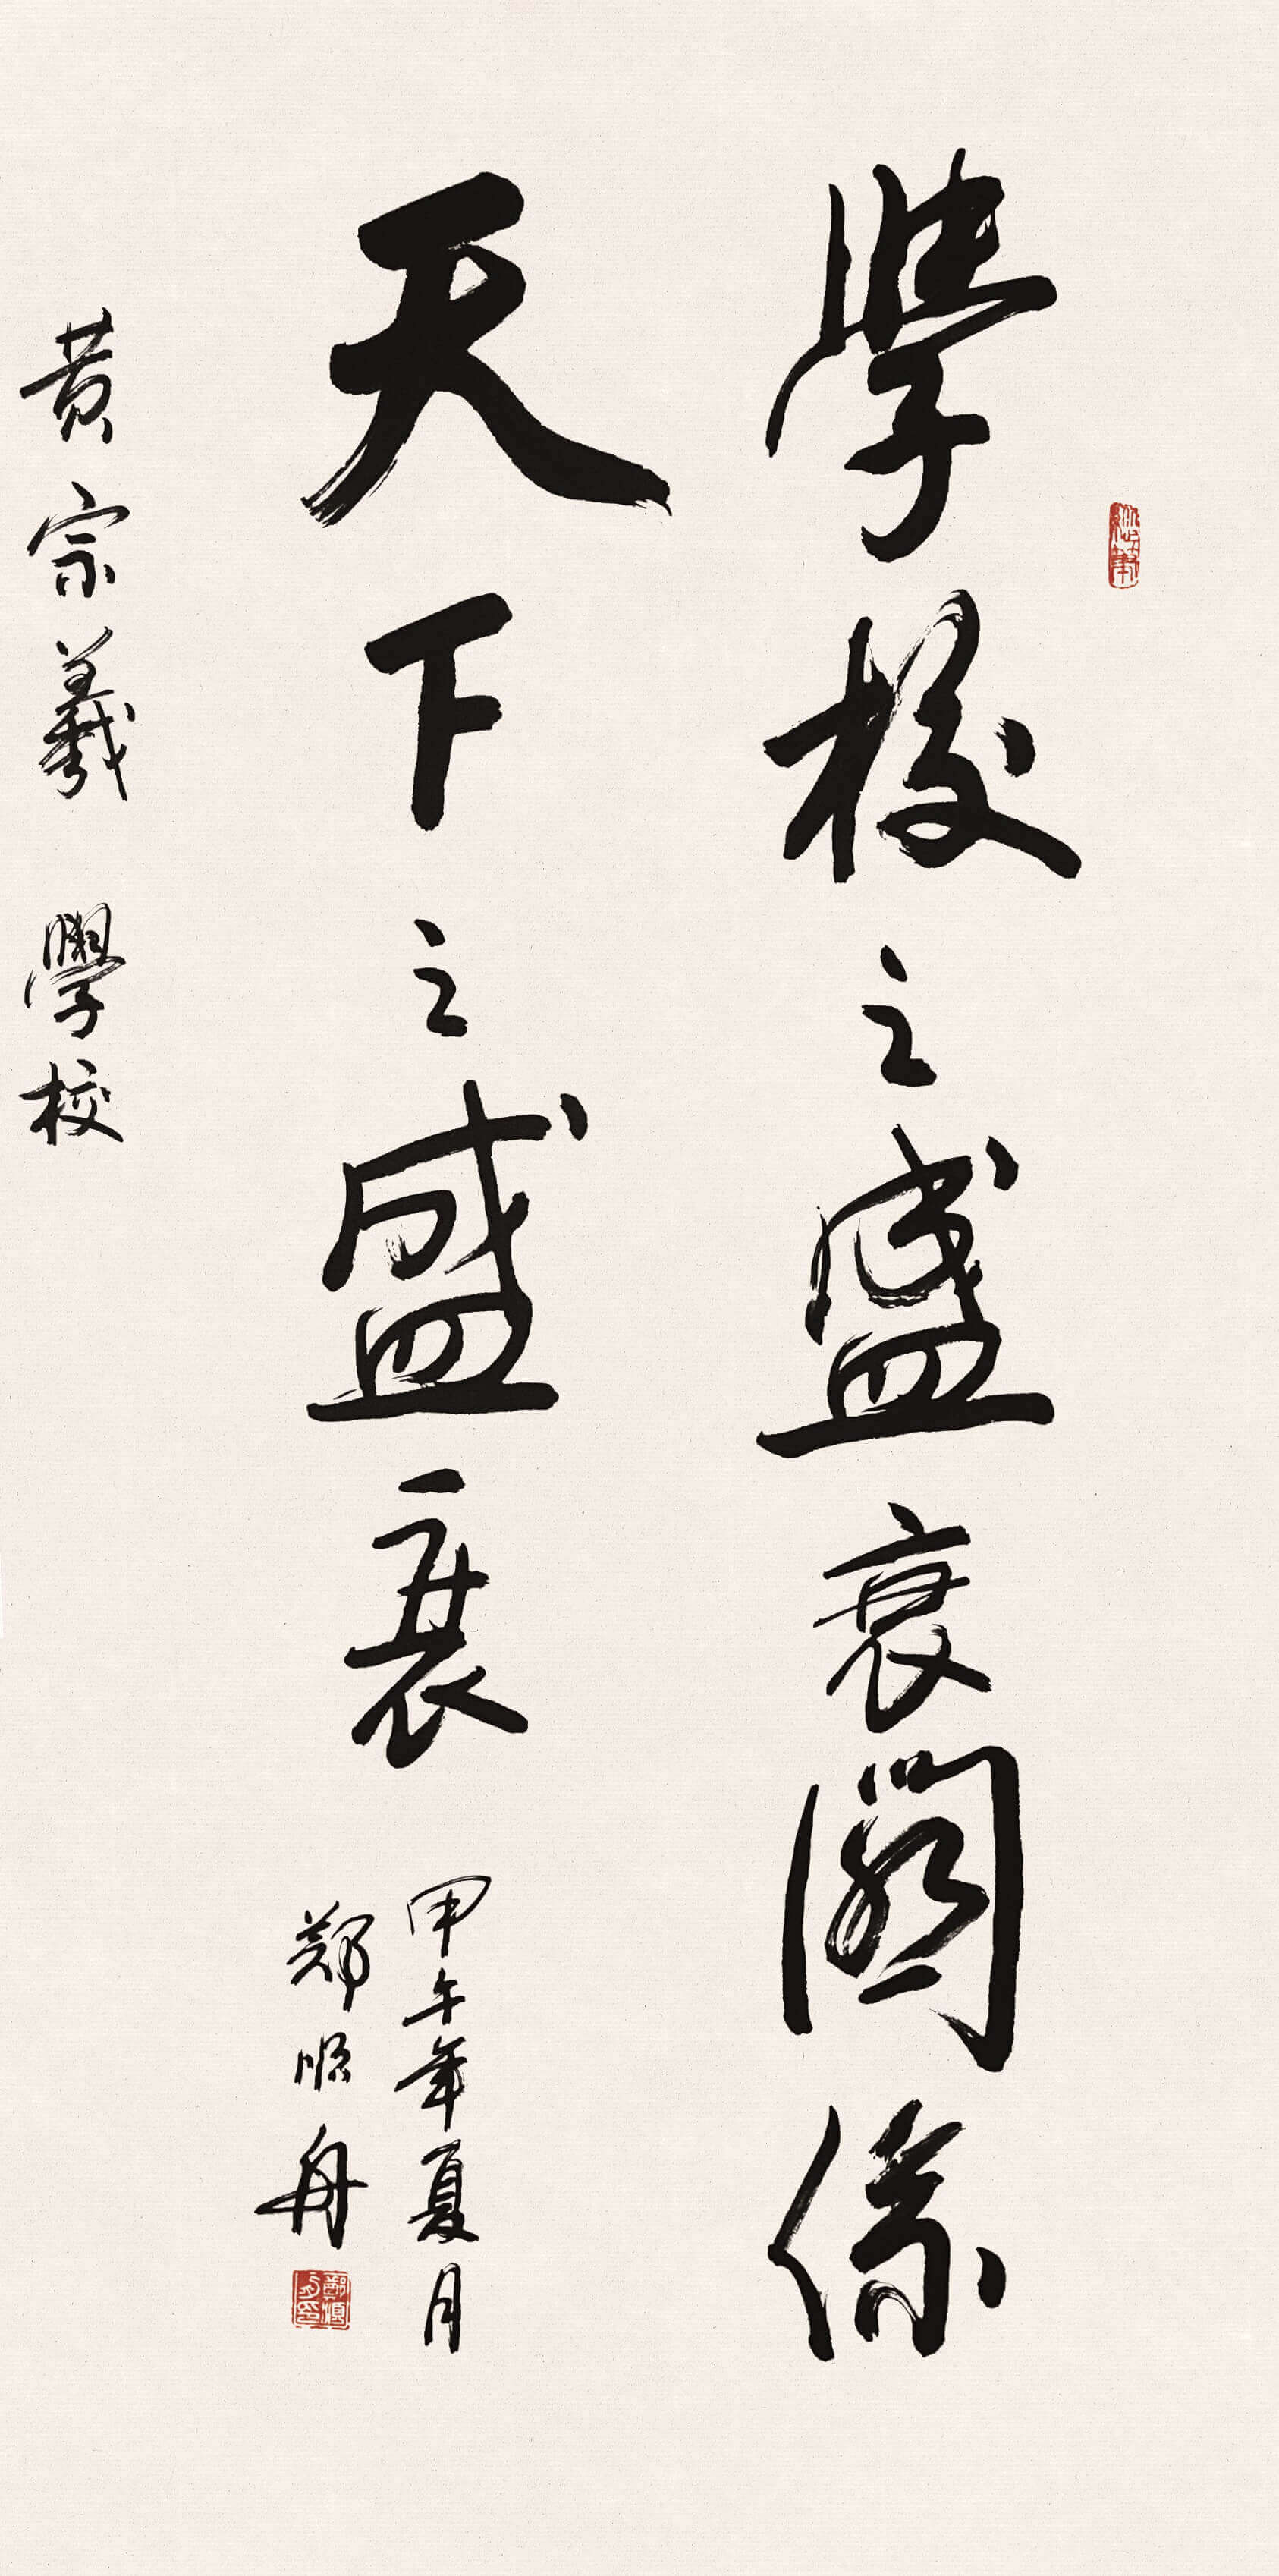 學校之盛衰關係
天下之盛衰
甲午年夏月
鄭順舟
黄宗羲 學校